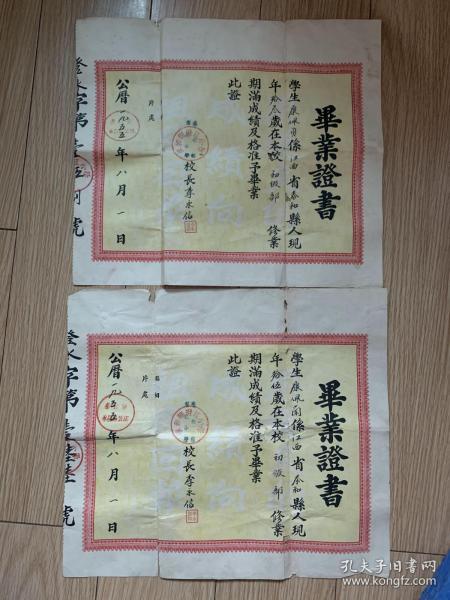 畢業證書
學生康佩勇係江西省泰和縣人現
年拾叁歲在本校初級部修業
期滿成績及格准予畢業
此證
校長李永信
片處
公曆一九五五年八月一日
登永字第壹伍捌號
畢業證書
學生康佩蘭係江西省泰和縣人現
年拾伍歲在本校初級部修業
期滿成績及格准予畢業
此證
校長李永信
片處
公曆一九五五年八月一日
孔夫子旧书网
www.kongfz.com